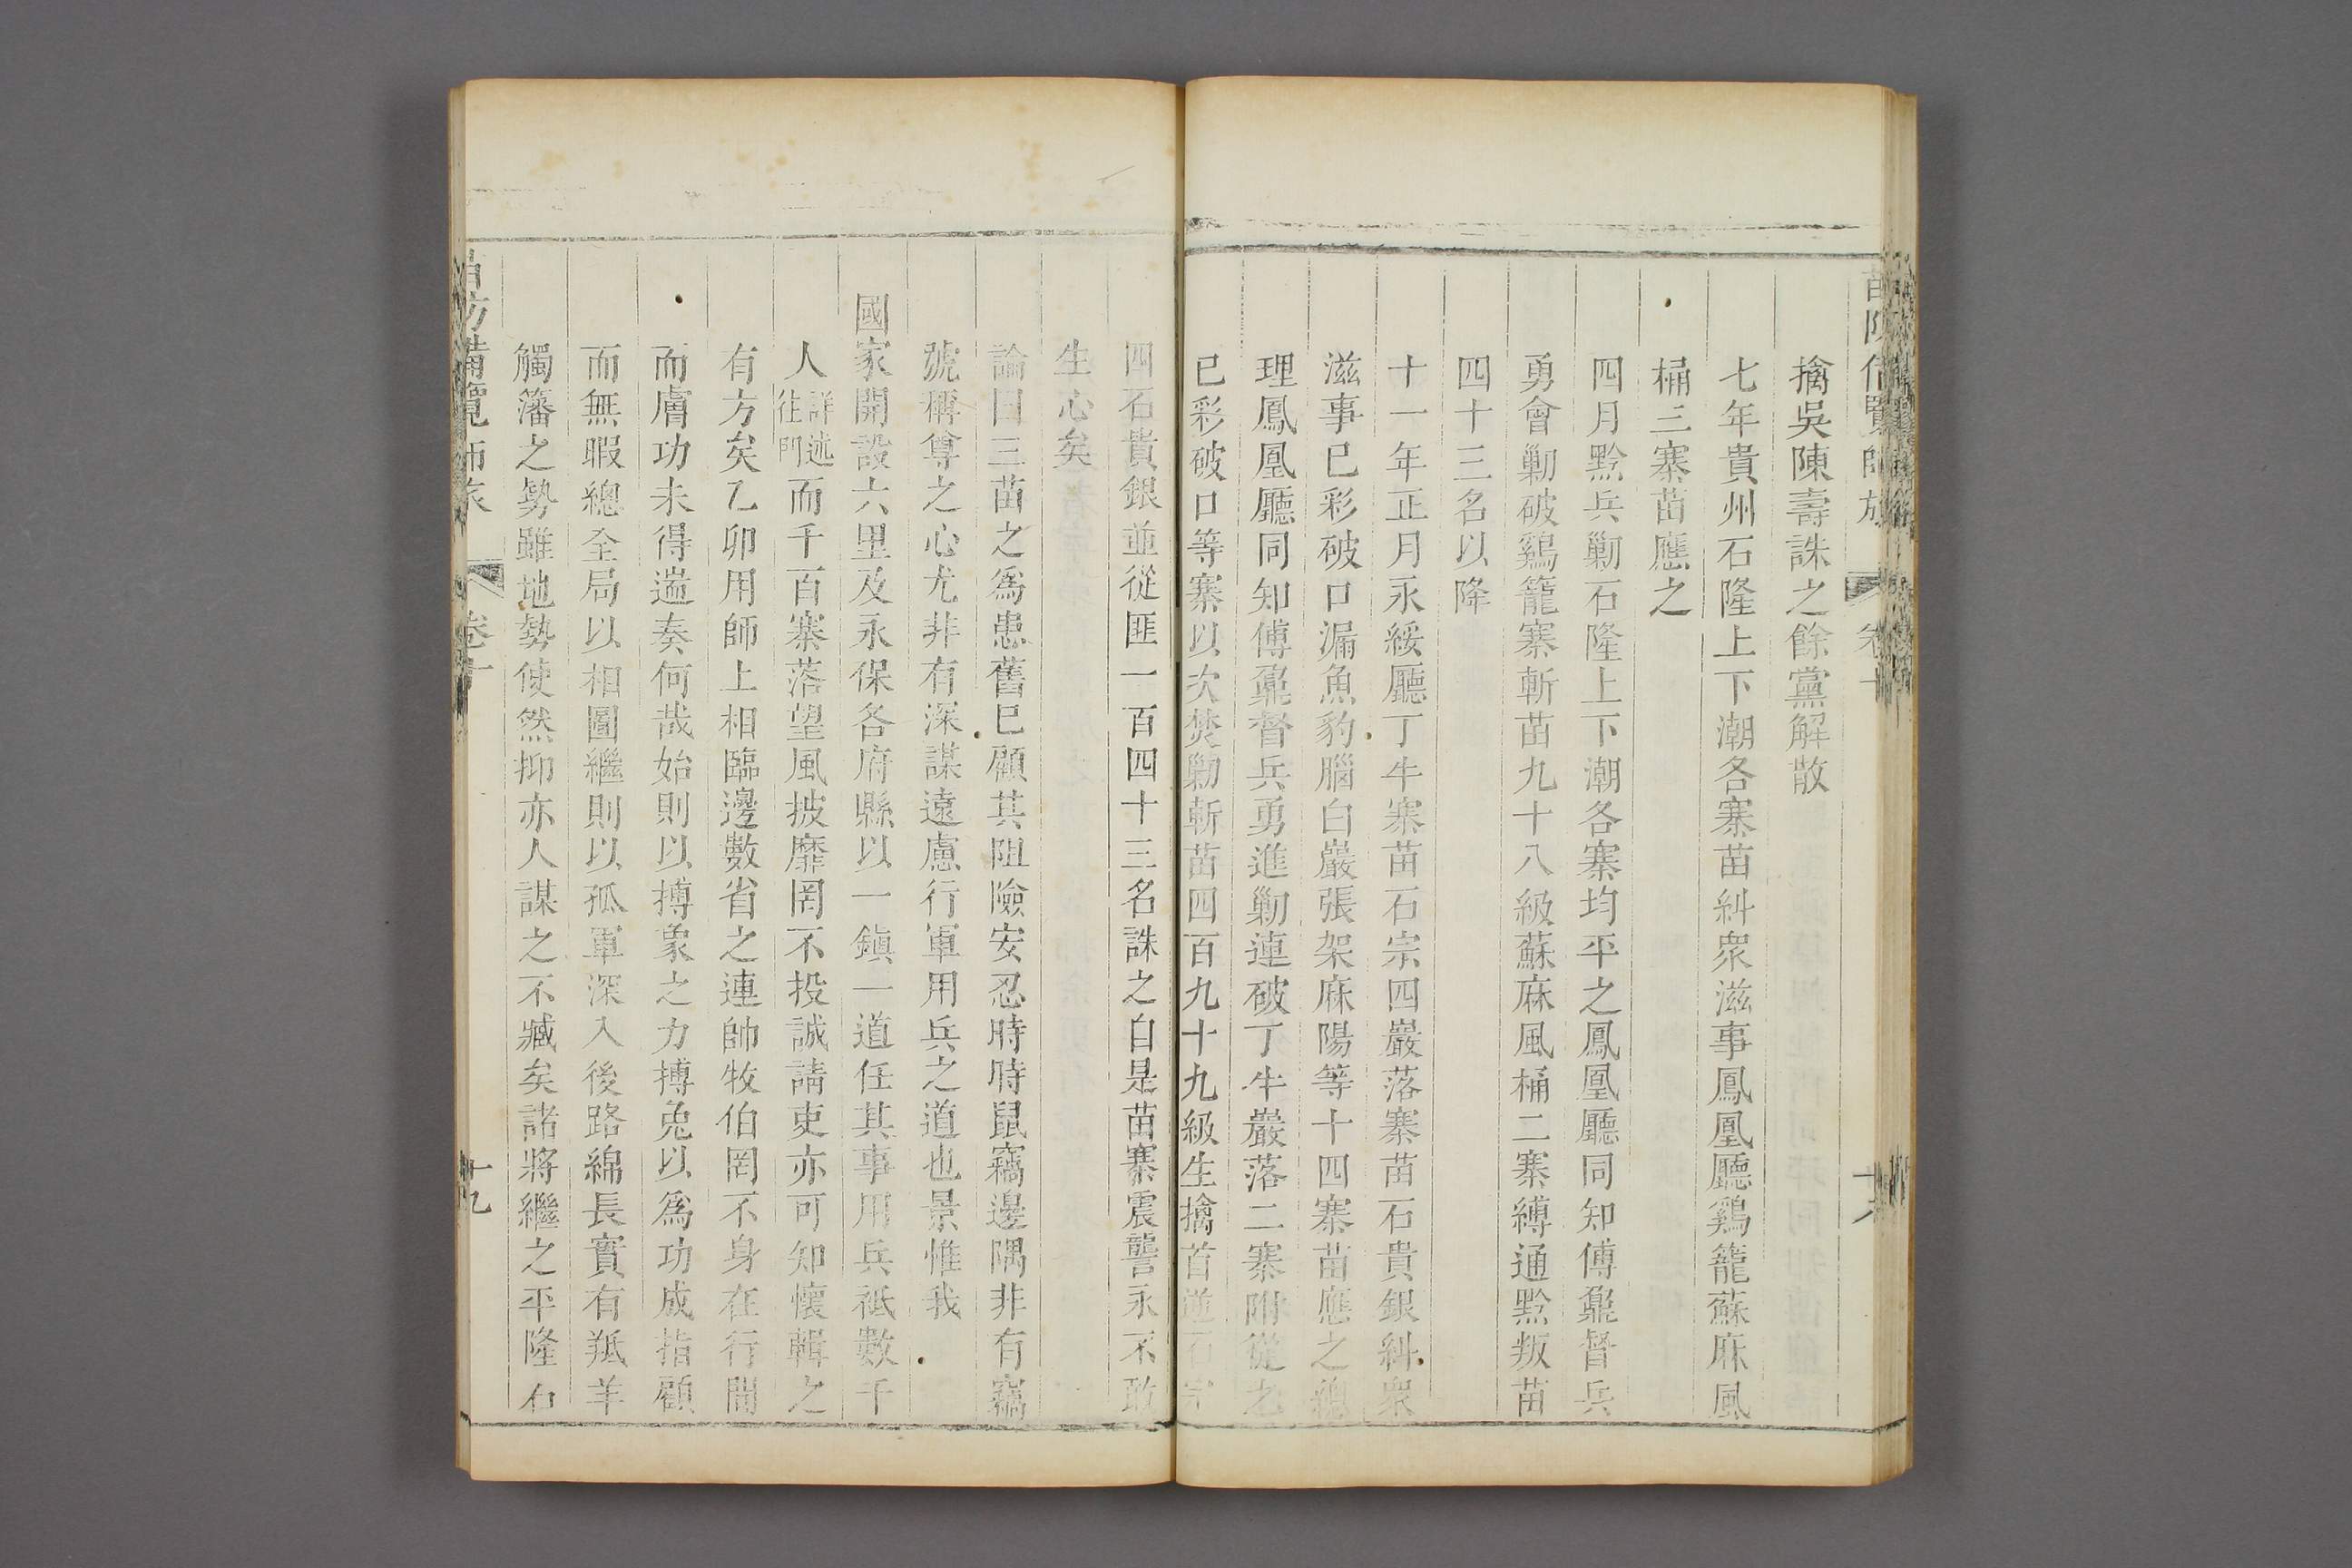 擒吳陳壽誅之餘黨解散
七年貴州石隆上下潮各寨苗糾衆滋事鳳凰廳鷄籠蘇麻風
桶三寨苗應之
四月黔兵勦石隆上下潮各寨均平之鳳凰廳同知傅鼐督兵
勇會勦破鷄籠寨斬苗九十八級蘇麻風桶二寨縛通黔叛苗
四十三名以降
十一年正月永綏廳丁牛寨苗石宗四巖落寨苗石貴銀糾衆
滋事已彩破口漏魚豹腦白巖張架麻陽等十四寨苗應之總
理鳳凰廳同知傅鼐督兵勇進勦連破丁牛巖落二寨附從之
已彩破口等寨以次焚勦斬苗四百九十九級生擒首逆石宗
四石貴銀並從匪一百四十三名誅之自是苗寨震讋永不敢
生心矣
論曰三苗之爲患舊巳顧其阻險安忍時時鼠竊邊隅非有竊
號稱尊之心尤非有深謀遠慮行軍用兵之道也景惟我
國家開設六里及永保各府縣以一鎮一道任其事用兵祇數千
人詳述往門而千百寨落望風披靡罔不投誠請吏亦可知懷輯之
有方矣乙卯用師上相臨邊數省之連帥牧伯罔不身在行間
而膚功未得遄奏何哉始則以搏象之力搏兔以爲功成指顧
而無暇總全局以相圖繼則以孤軍深入後路綿長實有羝羊
觸藩之勢雖地勢使然抑亦人謀之不臧矣諸將繼之平隆石
備覽師旅 卷十 十九